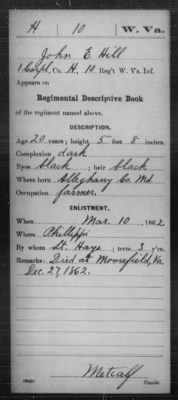 H 10 W. Va.
John E. Hill
1 Corpl, Co. H, 10 Reg't W. Va. Inf.
Appears on
Regimental Descriptive Book
of the regiment named above.
DESCRIPTION.
Age 20 years; height 5 feet 8 inches.
Complexion dark
Eyes black; hair black
Where born Alleghany Co. Md.
Occupation farmer.
ENLISTMENT.
When Mar. 10, 1862
Where Phillippi
By whom Lt. Hays; term 3 y'rs.
Remarks: Died at Moorefield, Va.
Dec. 27, 1862.
Metcalf
Copyist.